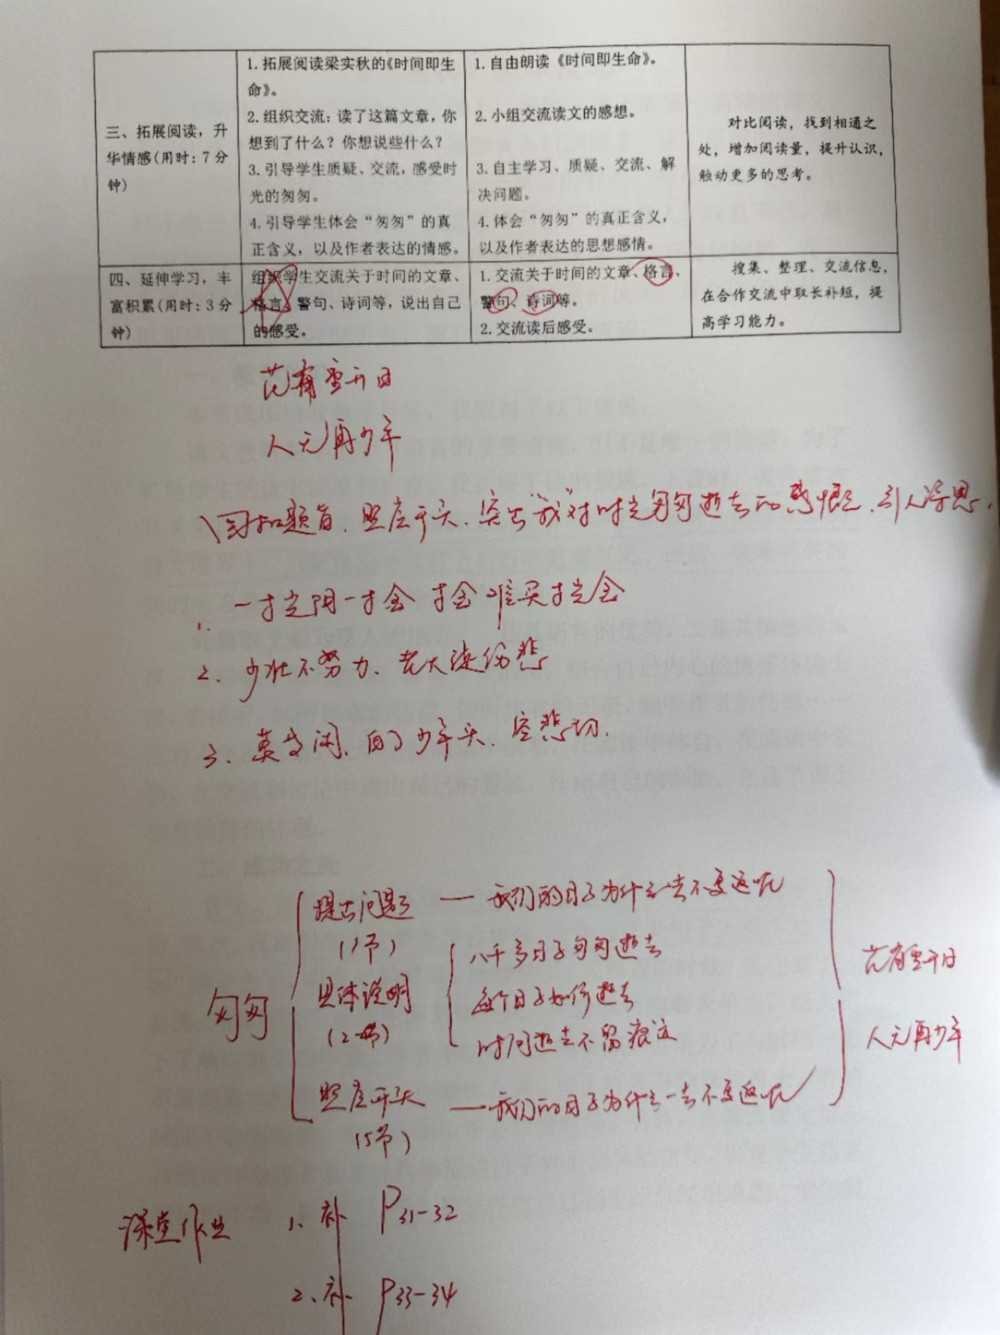 三、拓展阅读，升
华情感(用时：7分
钟)
1.拓展阅读梁实秋的《时间即生
命》。
2.组织交流：读了这篇文章，你
想到了什么？你想说些什么？
3.引导学生质疑、交流，感受时
光的匆匆。
4.引导学生体会“匆匆”的真
正含义，以及作者表达的情感。
1.自由朗读《时间即生命》。
2.小组交流读文的感想。
3.自主学习、质疑、交流、解
决问题。
4.体会“匆匆”的真正含义，
以及作者表达的思想感情。
对比阅读，找到相通之
处，增加阅读量，提升认识，
触动更多的思考。
四、延伸学习，丰
富积累(用时：3分
钟)
组织学生交流关于时间的文章、
格言、警句、诗词等，说出自己
的感受。
1.交流关于时间的文章、格言、
警句、诗词等。
2.交流读后感受。
搜集、整理、交流信息，
在合作交流中取长补短，提
高学习能力。
花有重开日
人无再少年
回扣题旨、照应开头、突出“我”对时光匆匆逝去的感慨、引人深思，
1. 一寸光阴一寸金 寸金难买寸光阴
2、少壮不努力、老大徒伤悲
3、莫等闲、白了少年头、空悲切.
匆匆
提出问题
(1节)
— 我们的日子为什么一去不复返呢
具体说明
(2-4节)
八千多日子匆匆逝去
每个日子如何逝去
时间逝去不留痕迹
照应开头
(5节)
— 我们的日子为什么一去不复返呢
花有重开日
人无再少年
课堂作业
1、补 P31-32
2、补 P33-34